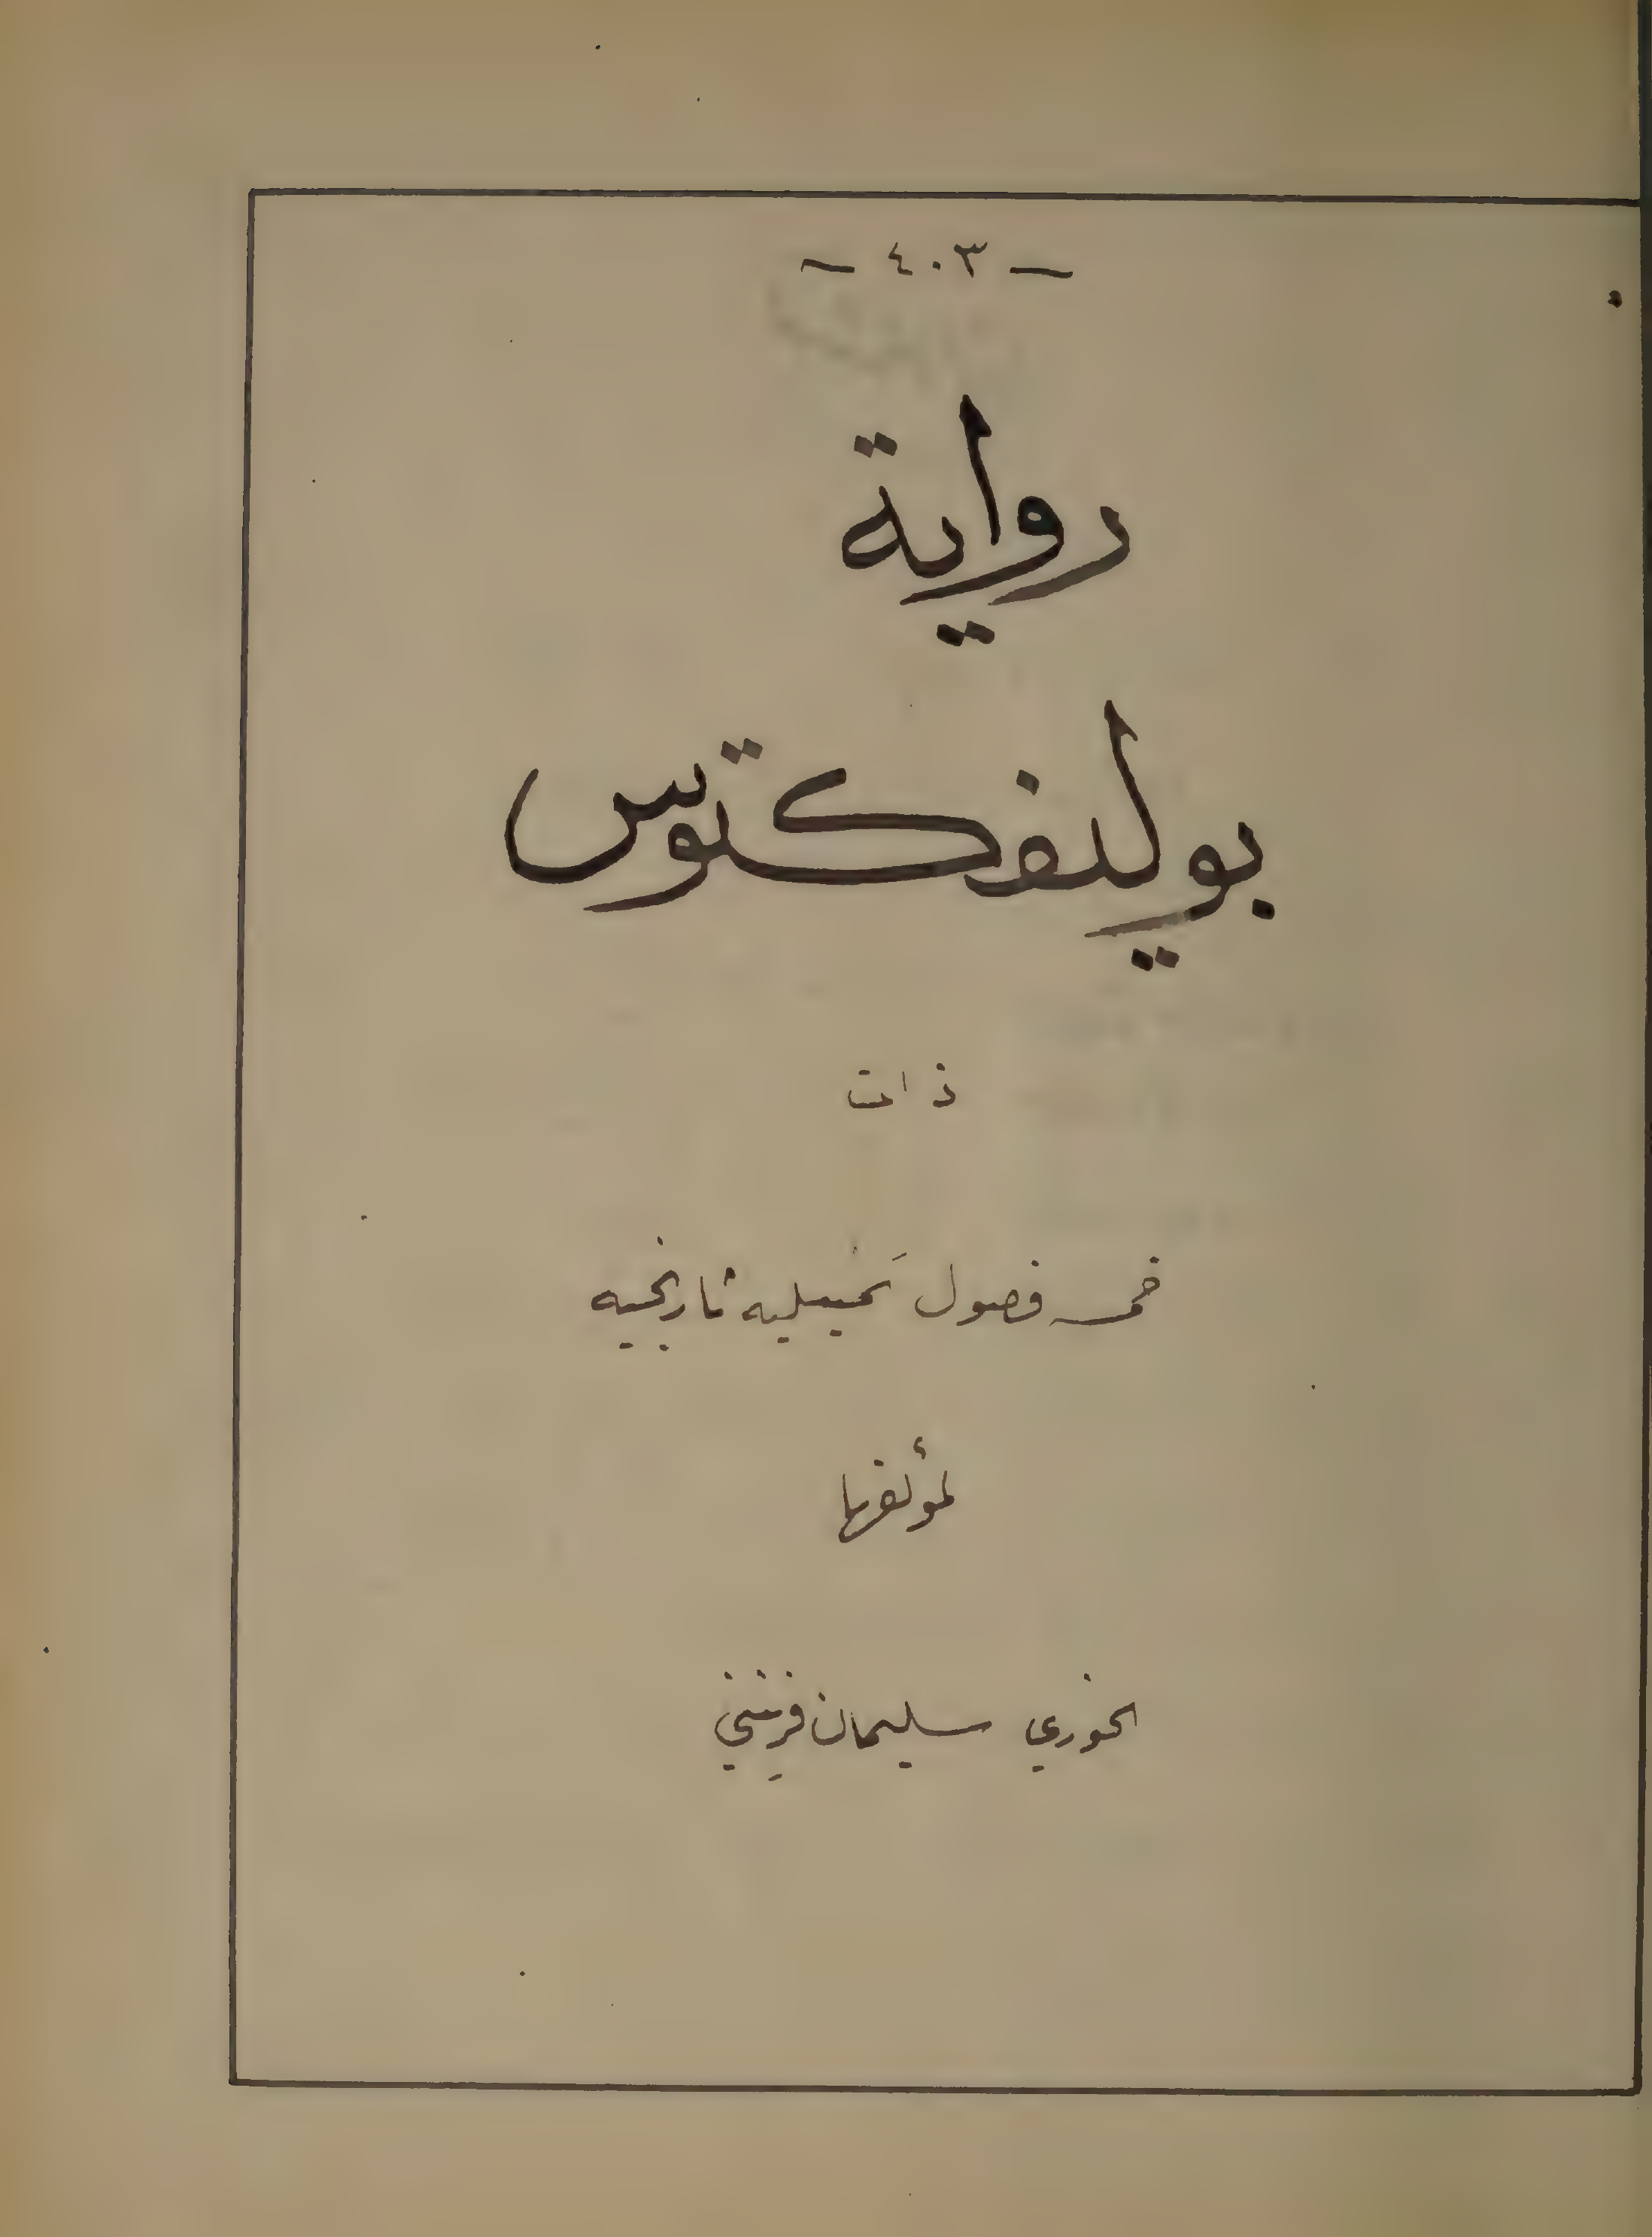 - ٤٠٣ -
رواية
بوليفكتوس
ذات
خمس فصول تَخيليه تاريخيه
لمؤلفها
الخوري سليمان